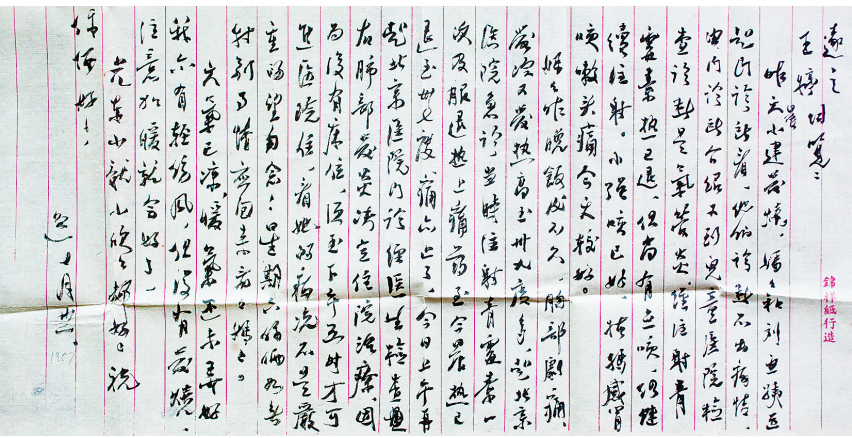 王婷 同覽：
昨天小建發燒，嫲々和刘
門診部看，他們診斷不出病情，
由門診部介紹又到兒童医院檢
查診斷是氣管炎，經注射青
霉素热已退，但尚有点咳，仍継
續注射。小強咳已好，感冒
咳嗽头痛今天較好。
嫲々昨晚飯後不久，胸部劇痛，
發冷又發热高至卅九度多，赴北京
医院急診，当時注射青霉素一
次及服退热止痛药至今晨热已
退至卅七度，痛亦止了，今日上午再
赴北京医院內診經医生檢查
右肺部發炎決定住院治療，因
為沒有床位，須至下午五時才可
進医院住，看她的病況不是嚴
重的望勿念；星期六倆如無
特別事情应回来看々媽々。
天氣已凉，暖氣还未弄好
我亦有輕傷風，但沒有發燒，
注意於暖就会好了。
小龍小欣々都好。祝
你倆好！
十月
1957
紙行造